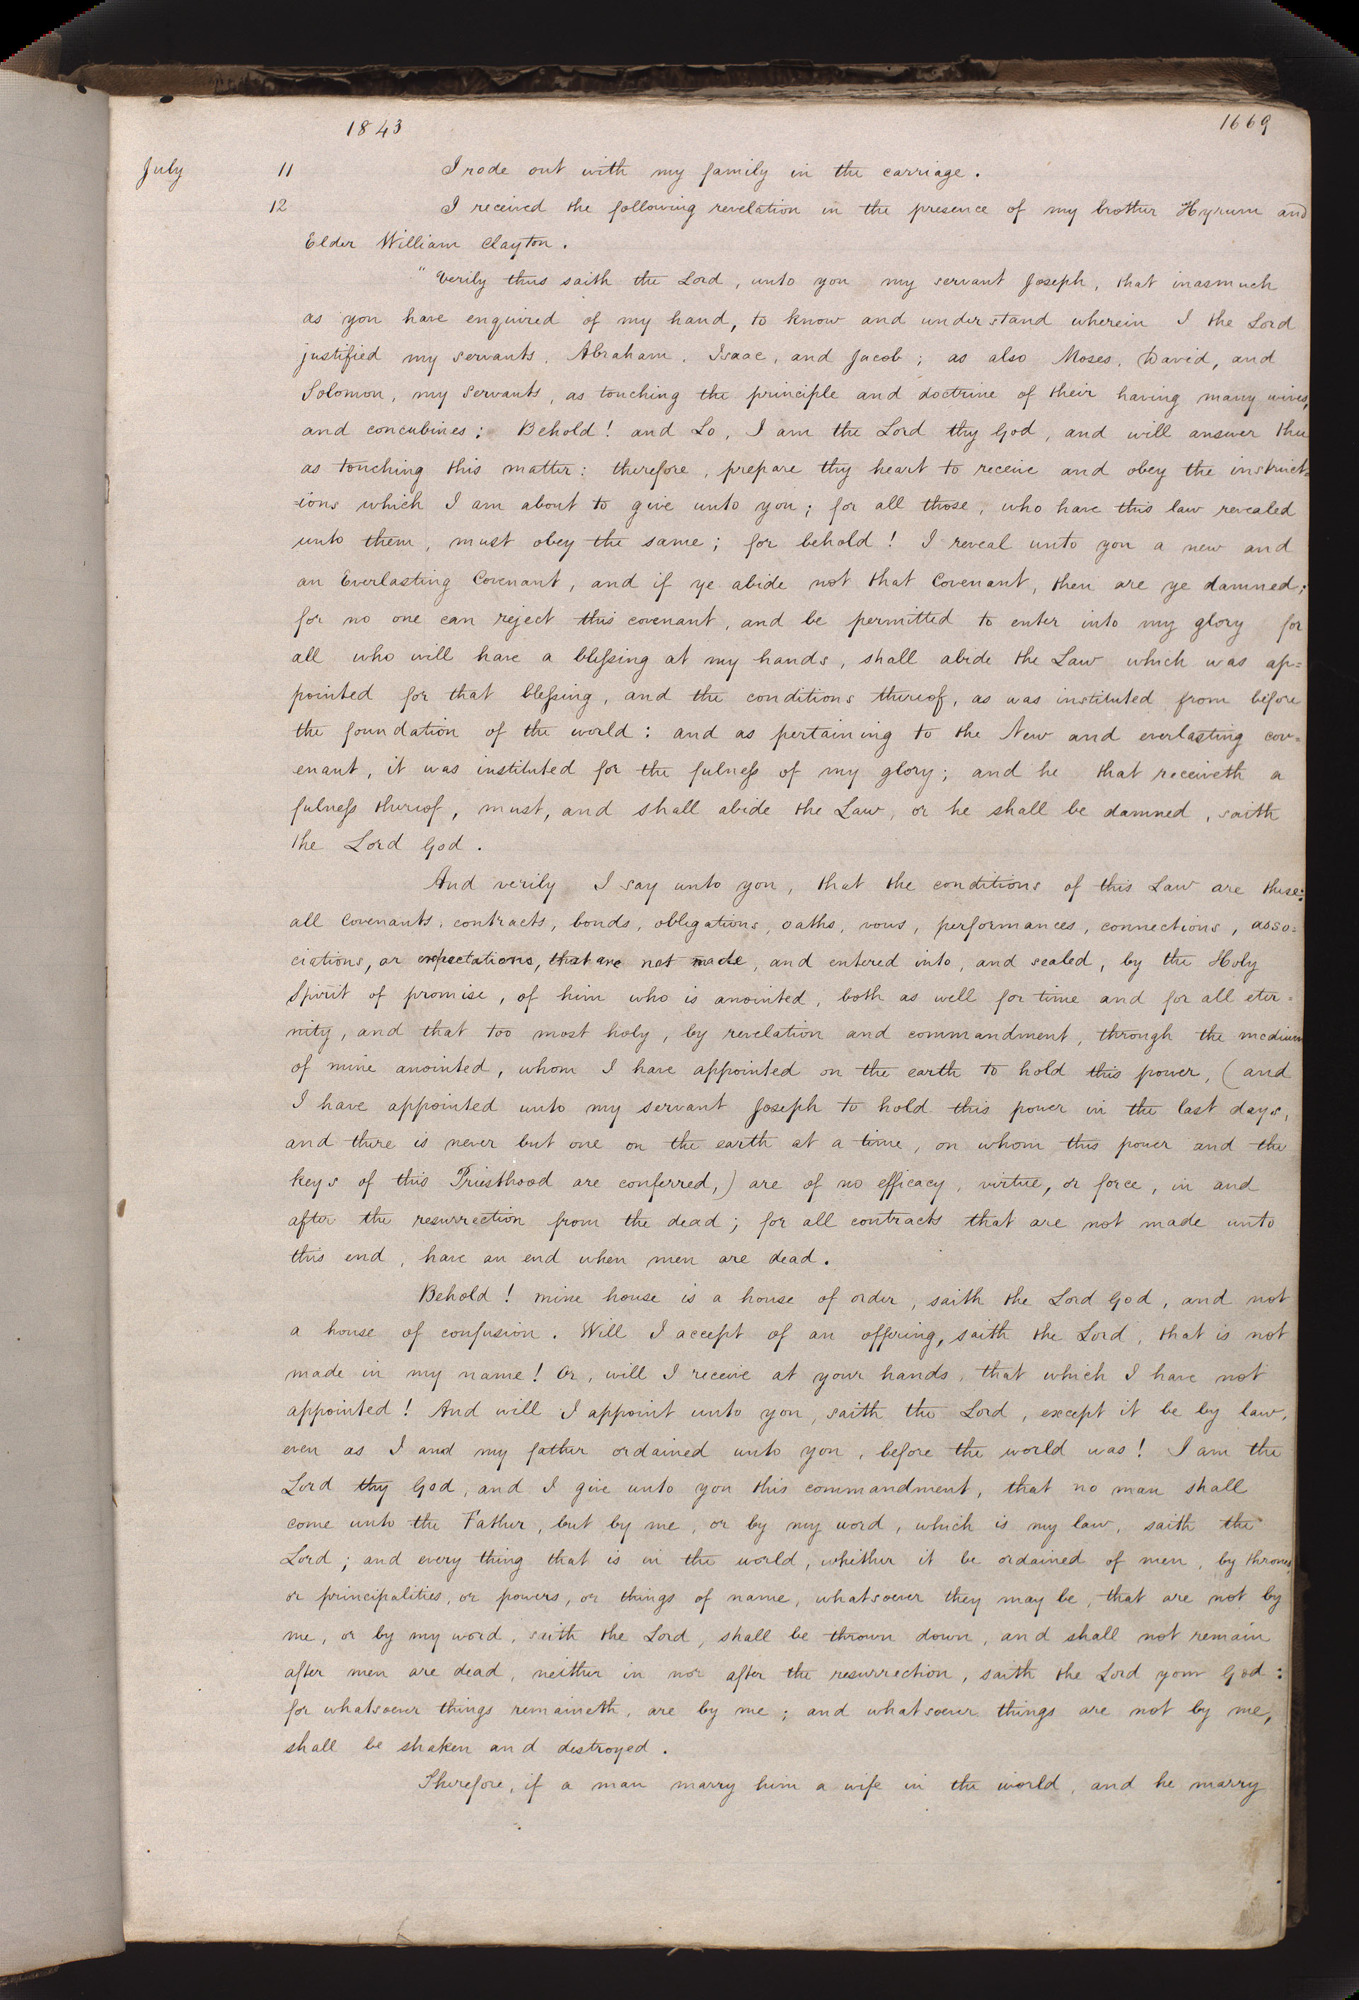 1843 1669
July 11 I rode out with my family in the carriage.
12 I received the following revelation in the presence of my brother Hyrum and
Elder William Clayton.
"Verily thus saith the Lord, unto you my servant Joseph, that inasmuch
as you have enquired of my hand, to know and understand wherein I the Lord
justified my servants, Abraham, Isaac, and Jacob; as also Moses, David, and
Solomon, my servants, as touching the principle and doctrine of their having many wives,
and concubines: Behold! and Lo, I am the Lord thy God, and will answer thee
as touching this matter: therefore, prepare thy heart to receive and obey the instruct=
=ions which I am about to give unto you; for all those, who have this law revealed
unto them, must obey the same; for behold! I reveal unto you a new and
an Everlasting Covenant, and if ye abide not that Covenant, then are ye damned;
for no one can reject this covenant, and be permitted to enter into my glory for
all who will have a blessing at my hands, shall abide the Law which was ap=
pointed for that blessing, and the conditions thereof, as was instituted from before
the foundation of the world: and as pertaining to the New and everlasting cov=
enant, it was instituted for the fulness of my glory; and he that receiveth a
fulness thereof, must, and shall abide the Law, or he shall be damned, saith
the Lord God.
And verily I say unto you, that the conditions of this Law are these:
all Covenants, contracts, bonds, obligations, oaths, vows, performances, connections, asso=
ciations, or expectations, that are not made, and entered into, and sealed, by the Holy
Spirit of promise, of him who is anointed, both as well for time and for all eter=
nity, and that too most holy, by revelation and commandment, through the medium
of mine anointed, whom I have appointed on the earth to hold this power, (and
I have appointed unto my servant Joseph to hold this power in the last days,
and there is never but one on the earth at a time, on whom this power and the
keys of this Priesthood are conferred,) are of no efficacy, virtue, or force, in and
after the resurrection from the dead; for all contracts that are not made unto
this end, have an end when men are dead.
Behold! mine house is a house of order, saith the Lord God, and not
a house of confusion. Will I accept of an offering, saith the Lord, that is not
made in my name! Or, will I receive at your hands, that which I have not
appointed! And will I appoint unto you, saith the Lord, except it be by law,
even as I and my father ordained unto you, before the world was! I am the
Lord thy God, and I give unto you this commandment, that no man shall
come unto the Father, but by me, or by my word, which is my law, saith the
Lord; and every thing that is in the world, whether it be ordained of men, by thrones,
or principalities, or powers, or things of name, whatsoever they may be, that are not by
me, or by my word, saith the Lord, shall be thrown down, and shall not remain
after men are dead, neither in nor after the resurrection, saith the Lord your God:
for whatsoever things remaineth, are by me; and whatsoever things are not by me,
shall be shaken and destroyed.
Therefore, if a man marry him a wife in the world, and he marry